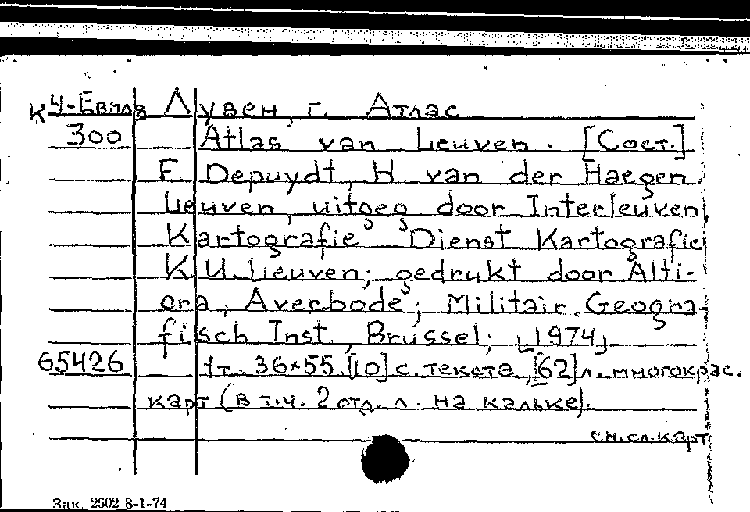 К 4-Евп Лувен, г. Атлас
300 Atlas van Leuven. [Сост.]
F. Depuydt, H. van der Haegen.
Leuven, uitgeg door Interleuven,
Kartografie Dienst Kartografie
K.U. Leuven; gedrukt door Alti-
ora, Averbode; Militair Geogra-
fisch Inst., Brussel; [1974]
65426 1т. 36×55. [10] с. текста, [62] л. многокрас.
карт (в т.ч. 2 отд. л. на кальке).
см. сл. карт
Зак. 2502 8-1-74